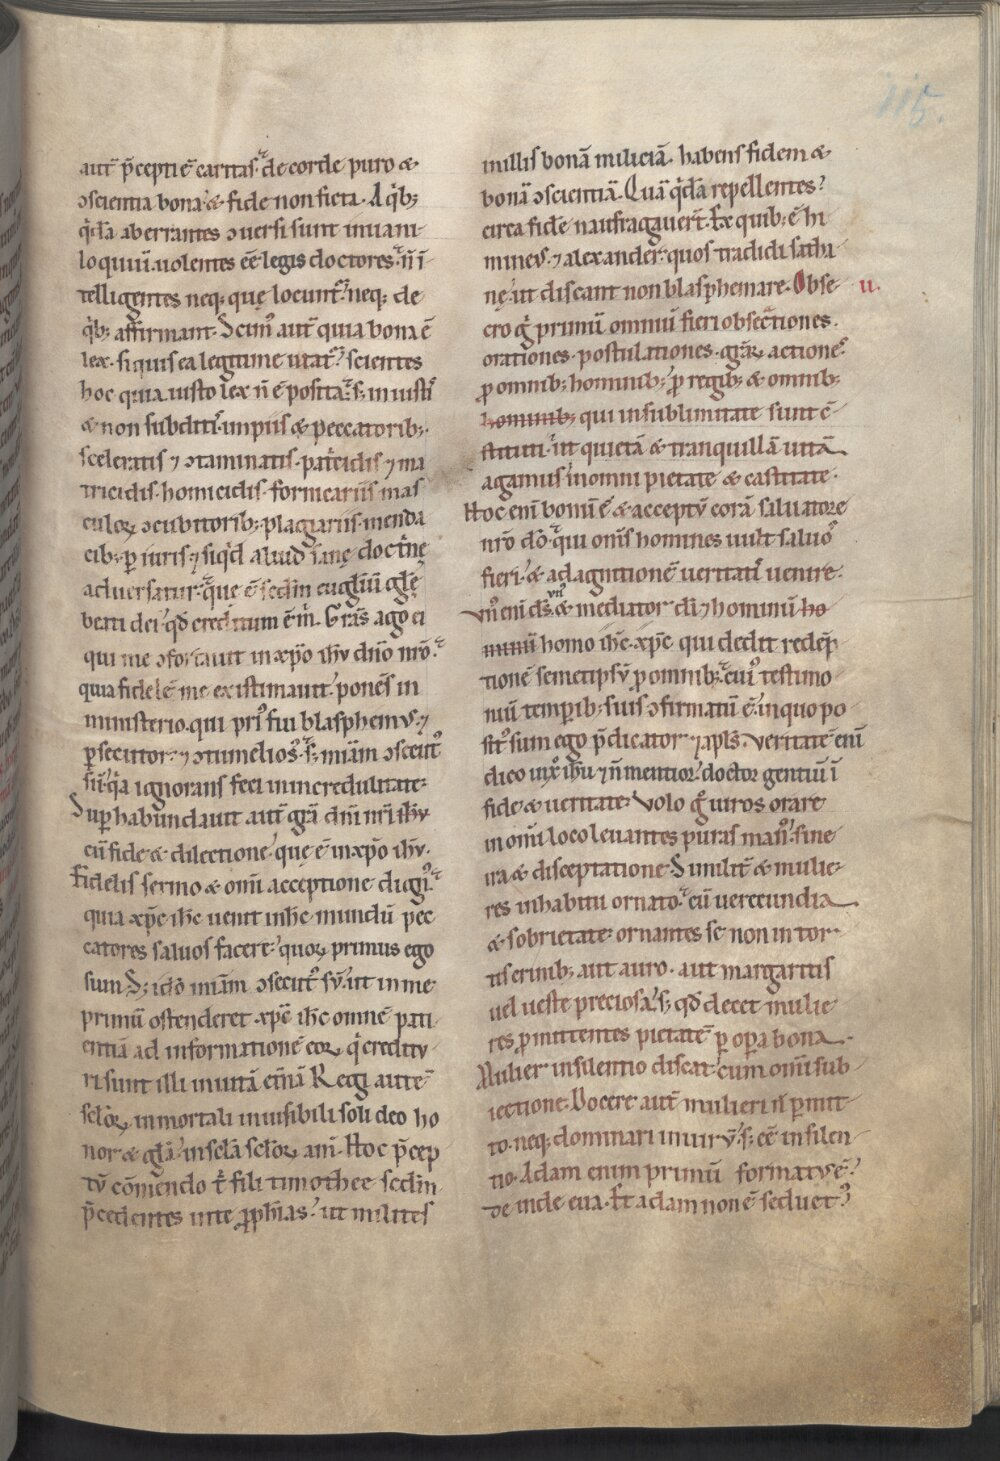 115.
aut̄ p̄cepti ē caritas. de corde puro &
ɔscientia bona & fide non ficta. A q̇b;
q̇dā aberrantes ɔuersi sunt in uani
loquiū. uolentes eē legis doctores. n̄ ī
telligentes neq; quę locunt̄. neq; de
q̇b; affirmant. Scim᷒ aut̄ quia bona ē
lex. si quis ea legitime utat̄. scientes
hoc quia iusto lex n̄ ē posita. s; iniusti᷒
& non subditi᷒. impiis & peccatorib;.
sceleratis ⁊ ɔtaminatis. patricidis ⁊ ma
tricidis. homicidis. fornicariis mas
culoꝝ ɔcubitorib; plagiariis. menda
cib; ꝑiuris. ⁊ siqḋ aliud sanę doctⁱnę
aduersatur. que ē scd̄m eugl̄iū gl̄ę
beati dei. qd̄ creditum ē m̄. Gr̄as ago ei
qui me ɔfortauit in xp̄o ih̄u dn̄o nr̄o.
quia fidelē me existimauit. ponēs in
ministerio. qui pri᷒ fui blasphem᷒. ⁊
ꝑsecutor. ⁊ ɔtumelios᷒. s; mīam ɔsecut᷒
sū. q̇a ignorans feci in incredulitate.
Suꝑhabundauit aut̄ gr̄a dn̄i nr̄i ih̄u
cū fide & dilectione. que ē in xp̄o ih̄u.
Fidelis sermo & om̄i acceptione dign᷒.
quia xp̄c ih̄c uenit in h̄c mundū pec
catores saluos facere. quoꝝ primus ego
sum. S; ido̅ mīam ɔsecut᷒ sū. ut in me
primū ostenderet xp̄c ih̄c omnē pati
entiā ad informationē eoꝝ q̇ creditu
ri sunt illi in uitā et̄nā. Regi autē
sclo̅ꝝ inmortali inuisibili soli deo ho
nor & gl̄a. in scl̄a scl̄oꝝ am̄. Hoc p̄cep
tū cōmendo t̄ fili timothee scd̄m
p̄cedentes in te ꝓph̄ias. ut milites
in illis bonā miliciā. habens fidem &
bonā ɔscientiā. Quā q̇dā repellentes.
circa fidē naufragauer̄t. Ex quib; ē hi
mine᷒. ⁊ alexander. quos tradidi satha
nę. ut discant non blasphemare. Obse u.
cro gͦ primū omniū fieri obsecrationes.
orationes. postulationes. gr̄aꝝ actiones.
ꝓ omnib; hominib;. ꝓ regib; & omnib;
hominib; qui in sublimitate sunt ɔ̄
stituti. ut quietā & tranquillā uitā
agamus in omni pietate & castitate.
Hoc enī bonū ē & acceptū corā saluatore
nr̄o dō. qui om̄s homines uult saluo᷒
fieri. & ad agnitionē ueritati᷒ uenire.
Vn᷒ enī ds̄. vn᷒ & mediator dī ⁊ hominū ho
minū homo ih̄c xp̄c qui dedit redēp
tionē semetipsū ꝓ omnib;. cui᷒ testimo
niū temꝑib; suis ɔfirmatū ē. in quo po
sit᷒ sum ego p̄dicator ⁊ apls̄. Veritatē enī
dico in xp̄o ih̄u ⁊ n̄ mentior. doctor gentiū ī
fide & ueritate. Volo gͦ uiros orare
in om̄i loco leuantes puras man᷒. sine
ira & disceptatione. Similit̄ & mulie
res in habitu ornato. cū uerecundia
& sobrietate. ornantes se non in tor
tis crinib; aut auro. aut margaritis
uel ueste preciosa. s; qd̄ decet mulie
res ꝓmittentes pietatē ꝑ oꝑa bona.
Mulier in silentio discat. cum om̄i sub
iectione. Docere aut̄ mulieri n̄ ꝑmit
to. neq; dominari in uirū. s; eē in silen
tio. Adam enim primū formatus ē.
deinde eua. Et adam non ē seduct᷒.